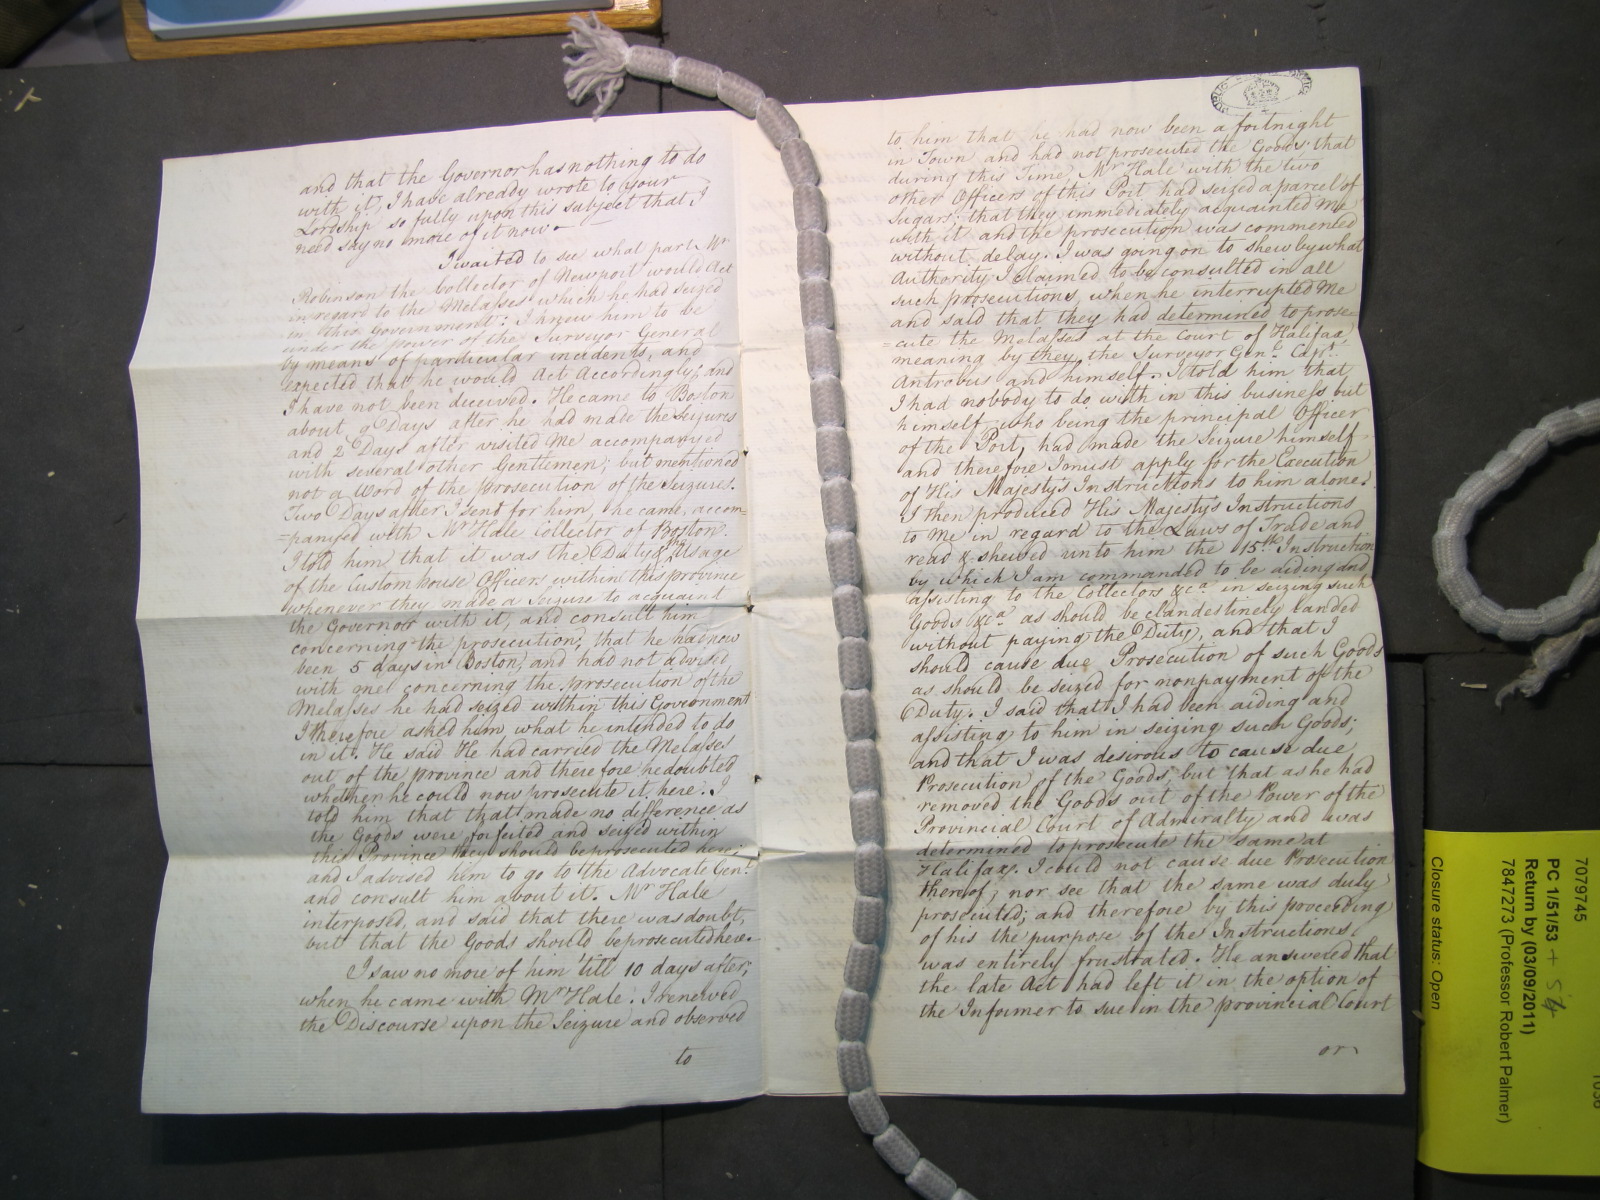 and that the Governor has nothing to do
with it, I have already wrote to your
Lordship so fully upon this subject that I
need say no more of it now
I waited to see what part Mr
Robinson the Collector of Newport would Act
in regard to the Melasses which he had seized
in this Government: I knew him to be
under the power of the Surveyor General
by means of particular incidents, and
expected that he would Act Accordingly; and
I have not been deceived. He came to Boston
about 9 Days after he had made the Seizures
and 2 Days after visited Me accompanyed
with several other Gentlemen; but mentioned
not a Word of the prosecution of the Seizures.
Two Days after I sent for him, he came, accom=
=panyed with Mr Hale Collector of Boston.
I told him that it was the Duty & the Usage
of the Custom house Officers within this province
whenever they made a Seizure to acquaint
the Governor with it, and consult him
concerning the prosecution; that he had now
been 5 days in Boston, and had not advised
with me concerning the prosecution of the
Melasses he had seized within this Government
I therefore asked him what he intended to do
in it. He said He had carried the Melasses
out of the province and therefore he doubted
whether he could now prosecute it here. I
told him that that made no difference as
the Goods were forfeited and seized within
this Province they should be prosecuted here;
and I advised him to go to the Advocate Genl.
and consult him about it. Mr Hale
interposed, and said that there was doubt,
but that the Goods should be prosecuted here.
I saw no more of him 'till 10 days after,
when he came with Mr Hale. I renewed
the Discourse upon the Seizure and observed
to
to him that he had now been a fortnight
in Town and had not prosecuted the Goods: that
during this Time, Mr Hale with the two
other Officers of this Port had seized a parcel of
Sugars; that they immediately acquainted Me
with it and the prosecution was commented
without delay. I was going on to shew by what
Authority I claimed to be consulted in all
such prosecutions, when he interrupted Me
and said that they had determined to prose=
=cute the Melasses at the Court of Halifax
meaning by they, the Surveyor Genl. Capt.
Antrobus and himself. I told him that
I had nobody to do with in this business but
himself, who being the principal Officer
of the Port, had made the Seizure himself
and therefore I must apply for the Execution
of His Majesty's Instructions to him alone.
I then produced His Majesty's Instructions
to Me in regard to the Laws of Trade and
read & shewed unto him the 15th Instruction
by which I am commanded to be aiding and
assisting to the Collectors &ca in seizing such
Goods &ca as should be clandestinely landed
without paying the Duty, and that I
should cause due Prosecution of such Goods
as should be seized for nonpayment of the
Duty. I said that I had been aiding and
assisting to him in seizing such Goods;
and that I was desirous to cause due
Prosecution of the Goods, but that as he had
removed the Goods out of the Power of the
Provincial Court of Admiralty and was
determined to prosecute the same at
Halifax. I could not cause due Prosecution
thereof, nor see that the same was duly
prosecuted; and therefore by this proceeding
of his the purpose of the Instructions
was entirely frustrated. He answered that
the late Act had left it in the option of
the Informer to sue in the provincial Court
or
7079745
PC 1/51/53 +
Return by (03/09/2011)
7847273 (Professor Robert Palmer)
Closure status: Open